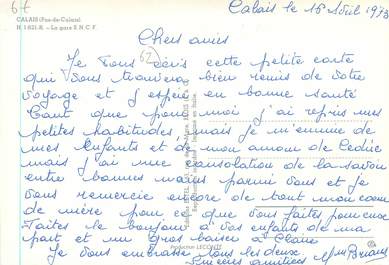 67
Calais le 15 Avril 1973
CALAIS (Pas-de-Calais)
N 1 621 A - La gare S N C F
Chers amis
62
Je vous écris cette petite carte
qui vous trouvera bien remis de votre
voyage et j'espère en bonne santé
tant que pour moi j'ai repris mes
petites habitudes mais je m'ennuie de
mes Enfants et de mon amour de Cédée
mais j'ai une consolation de la savoir
entre bonnes mains parmi vous et je
vous remercie encore de tout mon coeur
de mère pour ce que vous faites pour eux
Faites le bonjour à vos enfants de ma
part et un gros baiser à Claire
Production LECONTE
Je vous embrasse tous les deux.
Sincères amitiées Mme